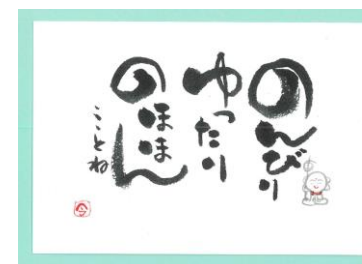 のんびり
ゆったり
のほほん
こころね